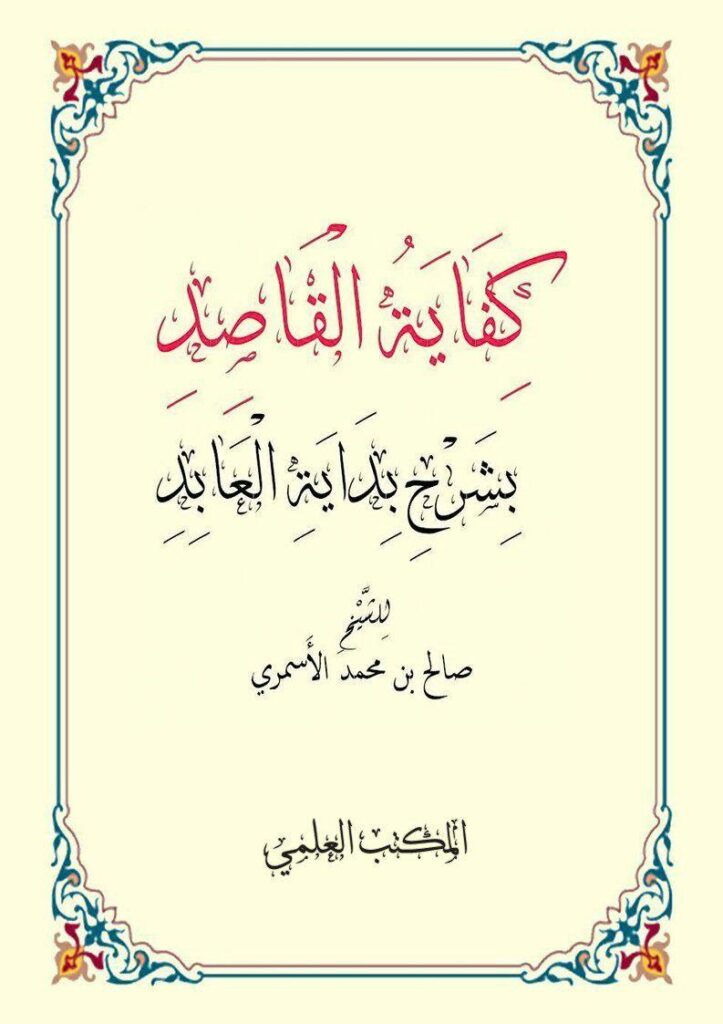 كِفَايَةُ الْقَاصِدِ
بِشَرْحِ بِدَايَةِ الْعَابِدِ
لِلشَّيْخِ
صالح بن محمد الأَسمري
المكتب العلمي